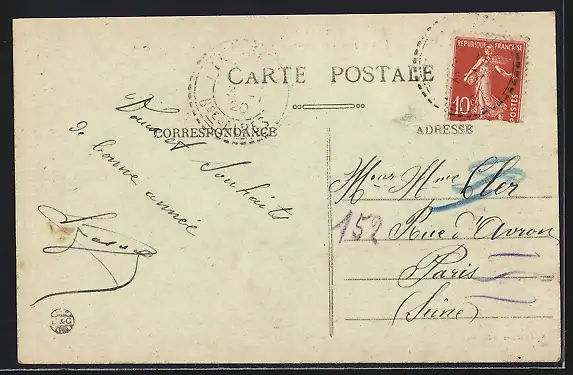 CARTE POSTALE
CORRESPONDANCE
ADRESSE
REPUBLIQUE FRANÇAISE
10c
POSTES
Souhaits
de bonne année
Mr Mme Cler
152
Rue d'Avron
Paris
(Seine)